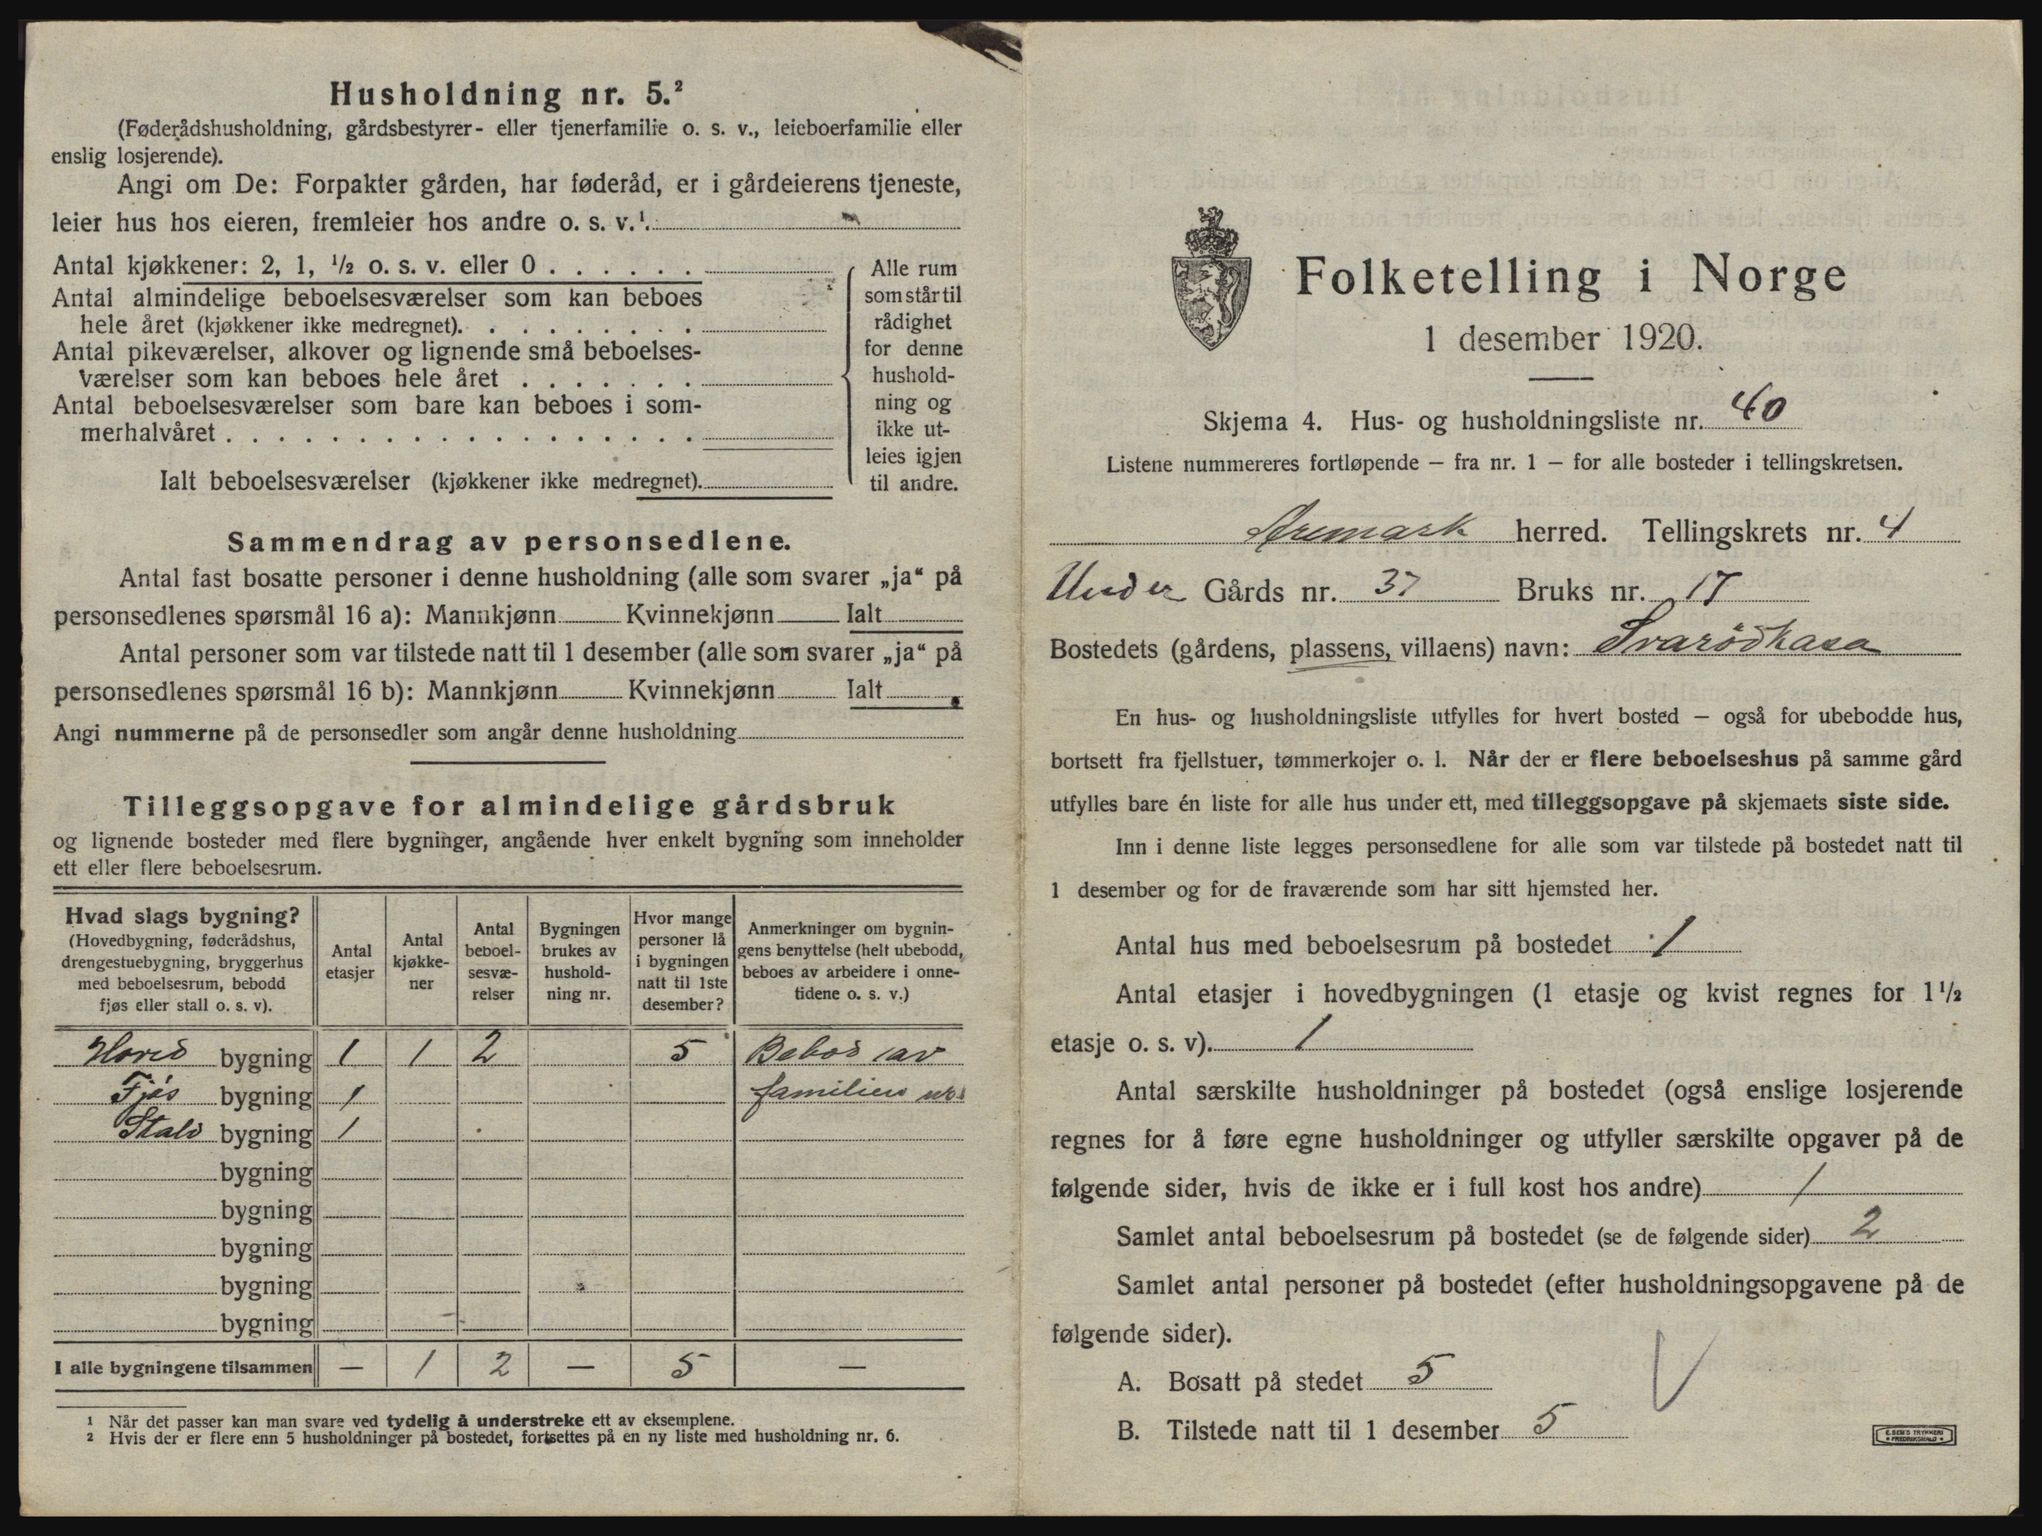 Husholdning nr. 5.²
(Føderådshusholdning, gårdsbestyrer- eller tjenerfamilie o. s. v., leieboerfamilie eller
enslig losjerende).
Angi om De: Forpakter gården, har føderåd, er i gårdeierens tjeneste,
leier hus hos eieren, fremleier hos andre o. s. v.¹.
Antal kjøkkener: 2, 1, ½ o. s. v. eller 0 . . . . . .
Antal almindelige beboelsesværelser som kan beboes
hele året (kjøkkener ikke medregnet). . . . . . . . .
Antal pikeværelser, alkover og lignende små beboelses-
værelser som kan beboes hele året . . . . . . .
Antal beboelsesværelser som bare kan beboes i som-
merhalvåret . . . . . . . . . . . . . . . . . .
Ialt beboelsesværelser (kjøkkener ikke medregnet).
Alle rum
som står til
rådighet
for denne
hushold-
ning og
ikke ut-
leies igjen
til andre.
Sammendrag av personsedlene.
Antal fast bosatte personer i denne husholdning (alle som svarer „ja“ på
personsedlenes spørsmål 16 a): Mannkjønn Kvinnekjønn Ialt
Antal personer som var tilstede natt til 1 desember (alle som svarer „ja“ på
personsedlenes spørsmål 16 b): Mannkjønn Kvinnekjønn Ialt
Angi nummerne på de personsedler som angår denne husholdning
Tilleggsopgave for almindelige gårdsbruk
og lignende bosteder med flere bygninger, angående hver enkelt bygning som inneholder
ett eller flere beboelsesrum.
Hvad slags bygning?
(Hovedbygning, føderådshus,
drengestuebygning, bryggerhus
med beboelsesrum, bebodd
fjøs eller stall o. s. v).
Antal
etasjer
Antal
kjøkke-
ner
Antal
beboel-
sesvæ-
relser
Bygningen
brukes av
hushold-
ning nr.
Hvor mange
personer lå
i bygningen
natt til 1ste
desember?
Anmerkninger om bygnin-
gens benyttelse (helt ubebodd,
beboes av arbeidere i onne-
tidene o. s. v.)
Hoved bygning 1 1 2 5 Bebod av
Fjøs bygning 1 familien
Stald bygning 1
bygning
bygning
bygning
bygning
bygning
I alle bygningene tilsammen — 1 2 — 5 —
¹ Når det passer kan man svare ved tydelig å understreke ett av eksemplene.
² Hvis der er flere enn 5 husholdninger på bostedet, fortsettes på en ny liste med husholdning nr. 6.
Folketelling i Norge
1 desember 1920.
Skjema 4. Hus- og husholdningsliste nr. 40
Listene nummereres fortløpende – fra nr. 1 – for alle bosteder i tellingskretsen.
Aremark herred. Tellingskrets nr. 4
Under Gårds nr. 37 Bruks nr. 17
Bostedets (gårdens, plassens, villaens) navn: Svarødkasa
En hus- og husholdningsliste utfylles for hvert bosted – også for ubebodde hus,
bortsett fra fjellstuer, tømmerkojer o. l. Når der er flere beboelseshus på samme gård
utfylles bare én liste for alle hus under ett, med tilleggsopgave på skjemaets siste side.
Inn i denne liste legges personsedlene for alle som var tilstede på bostedet natt til
1 desember og for de fraværende som har sitt hjemsted her.
Antal hus med beboelsesrum på bostedet 1
Antal etasjer i hovedbygningen (1 etasje og kvist regnes for 1½
etasje o. s. v). 1
Antal særskilte husholdninger på bostedet (også enslige losjerende
regnes for å føre egne husholdninger og utfyller særskilte opgaver på de
følgende sider, hvis de ikke er i full kost hos andre) 1
Samlet antal beboelsesrum på bostedet (se de følgende sider) 2
Samlet antal personer på bostedet (efter husholdningsopgavene på de
følgende sider).
A. Bosatt på stedet 5
B. Tilstede natt til 1 desember 5
E. SEM'S TRYKKERI
FREDRIKSHALD